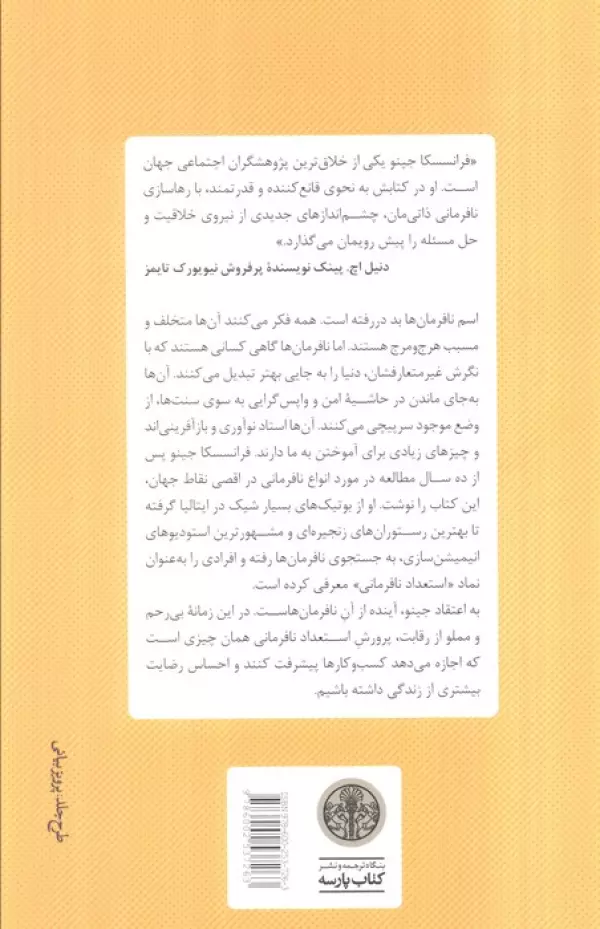 «فرانسسکا جینو یکی از خلاق‌ترین پژوهشگران اجتماعی جهان
است. او در کتابش به نحوی قانع‌کننده و قدرتمند، با رهاسازی
نافرمانی ذاتی‌مان، چشم‌اندازهای جدیدی از نیروی خلاقیت و
حل مسئله را پیش رویمان می‌گذارد.»
دنیل اچ. پینک نویسندهٔ پرفروش نیویورک تایمز
اسم نافرمان‌ها بد دررفته است. همه فکر می‌کنند آن‌ها متخلف و
مسبب هرج‌ومرج هستند. اما نافرمان‌ها گاهی کسانی هستند که با
نگرش غیرمتعارفشان، دنیا را به جایی بهتر تبدیل می‌کنند. آن‌ها
به‌جای ماندن در حاشیهٔ امن و واپس‌گرایی به سوی سنت‌ها، از
وضع موجود سرپیچی می‌کنند. آن‌ها استاد نوآوری و بازآفرینی‌اند
و چیزهای زیادی برای آموختن به ما دارند. فرانسسکا جینو پس
از ده سال مطالعه در مورد انواع نافرمانی در اقصی نقاط جهان،
این کتاب را نوشت. او از بوتیک‌های بسیار شیک در ایتالیا گرفته
تا بهترین رستوران‌های زنجیره‌ای و مشهورترین استودیوهای
انیمیشن‌سازی، به جستجوی نافرمان‌ها رفته و افرادی را به‌عنوان
نماد «استعداد نافرمانی» معرفی کرده است.
به اعتقاد جینو، آینده از آنِ نافرمان‌هاست. در این زمانهٔ بی‌رحم
و مملو از رقابت، پرورشِ استعداد نافرمانی همان چیزی است
که اجازه می‌دهد کسب‌وکارها پیشرفت کنند و احساس رضایت
بیشتری از زندگی داشته باشیم.
طرح جلد: پرویز بیانی
بنگاه ترجمه و نشر
کتاب پارسه